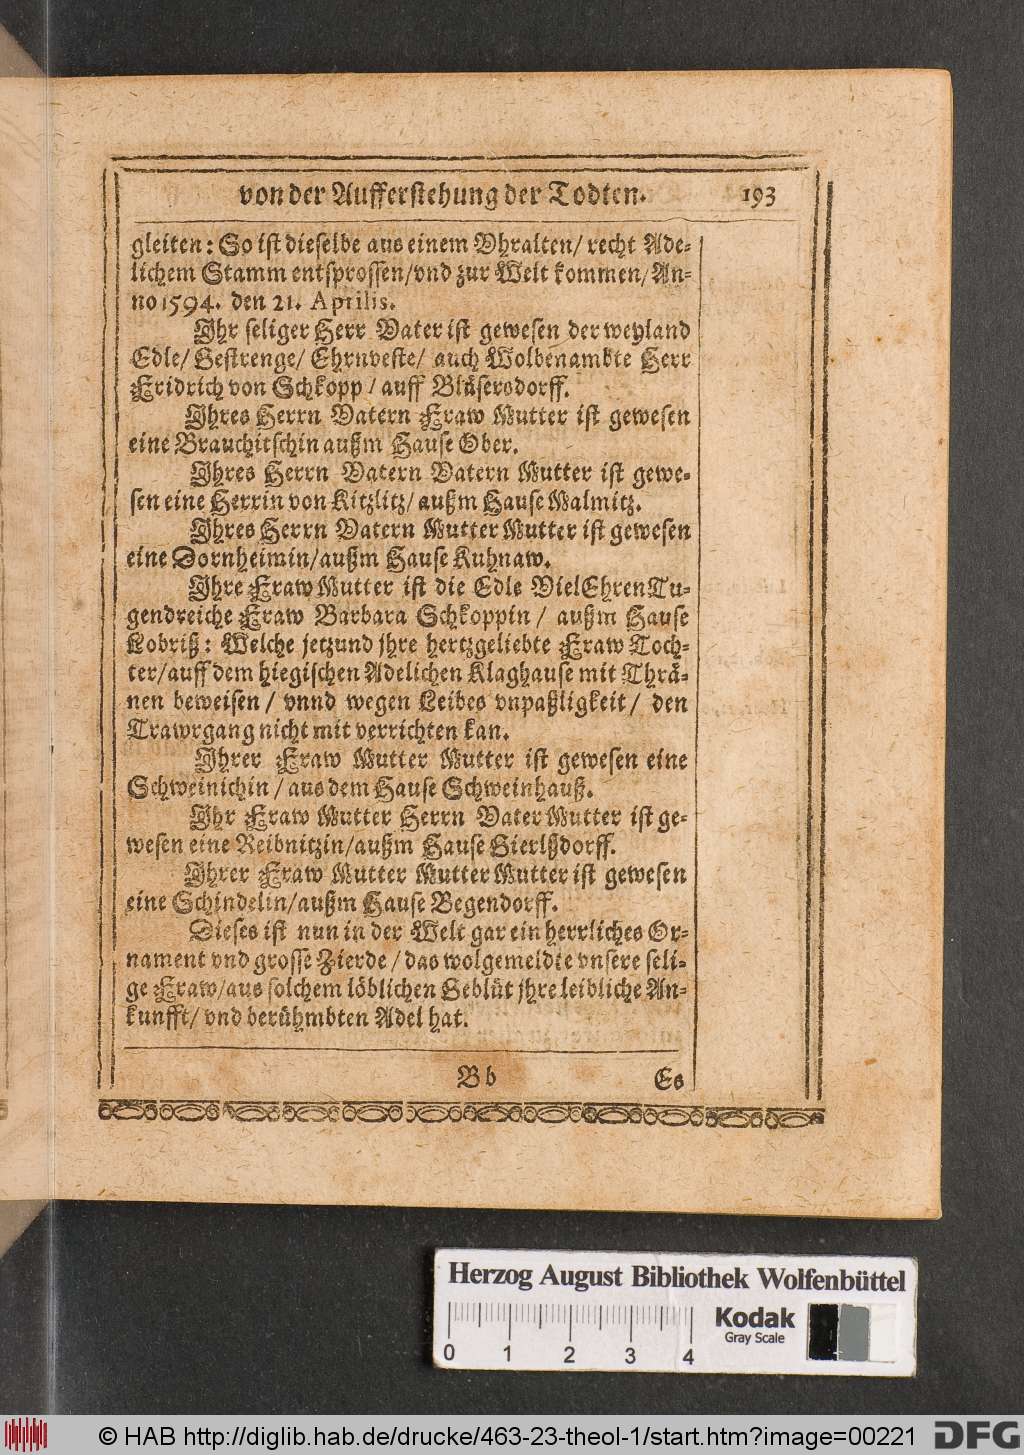 von der Aufferstehung der Todten. 193
gleiten: So ist dieselbe aus einem Vhralten/ recht Ade-
lichem Stamm entsprossen/vnd zur Welt kommen/An-
no 1594. den 21. Aprilis.
Ihr seliger Herr Vater ist gewesen der weyland
Edle/ Gestrenge/ Ehrnveste/ auch Wolbenambte Herr
Fridrich von Schkopp / auff Bläsersdorff.
Ihres Herrn Vatern Fraw Mutter ist gewesen
eine Brauchitschin außm Hause Ober.
Ihres Herrn Vatern Vatern Mutter ist gewe-
sen eine Herrin von Kitzlitz/ außm Hause Malmitz.
Ihres Herrn Vatern Mutter Mutter ist gewesen
eine Dornheimin/außm Hause Kuhnaw.
Ihre Fraw Mutter ist die Edle VielEhrenTu-
gendreiche Fraw Barbara Schkoppin / außm Hause
Lobriß: Welche jetzund jhre hertzgeliebte Fraw Toch-
ter/auff dem hiegischen Adelichen Klaghause mit Thrä-
nen beweisen / vnnd wegen Leibes vnpaßligkeit/ den
Trawrgang nicht mit verrichten kan.
Ihrer Fraw Mutter Mutter ist gewesen eine
Schweinichin / aus dem Hause Schweinhauß.
Ihr Fraw Mutter Herrn Vater Mutter ist ge-
wesen eine Reibnitzin/außm Hause Gierlßdorff.
Ihrer Fraw Mutter Mutter Mutter ist gewesen
eine Schindelin/außm Hause Begendorff.
Dieses ist nun in der Welt gar ein herrliches Or-
nament vnd grosse Zierde / das wolgemeldte vnsere seli-
ge Fraw/aus solchem löblichen Geblüt jhre leibliche An-
kunfft/ vnd berühmbten Adel hat.
Bb Es
Herzog August Bibliothek Wolfenbüttel
Kodak
Gray Scale
0 1 2 3 4
© HAB http://diglib.hab.de/drucke/463-23-theol-1/start.htm?image=00221
DFG